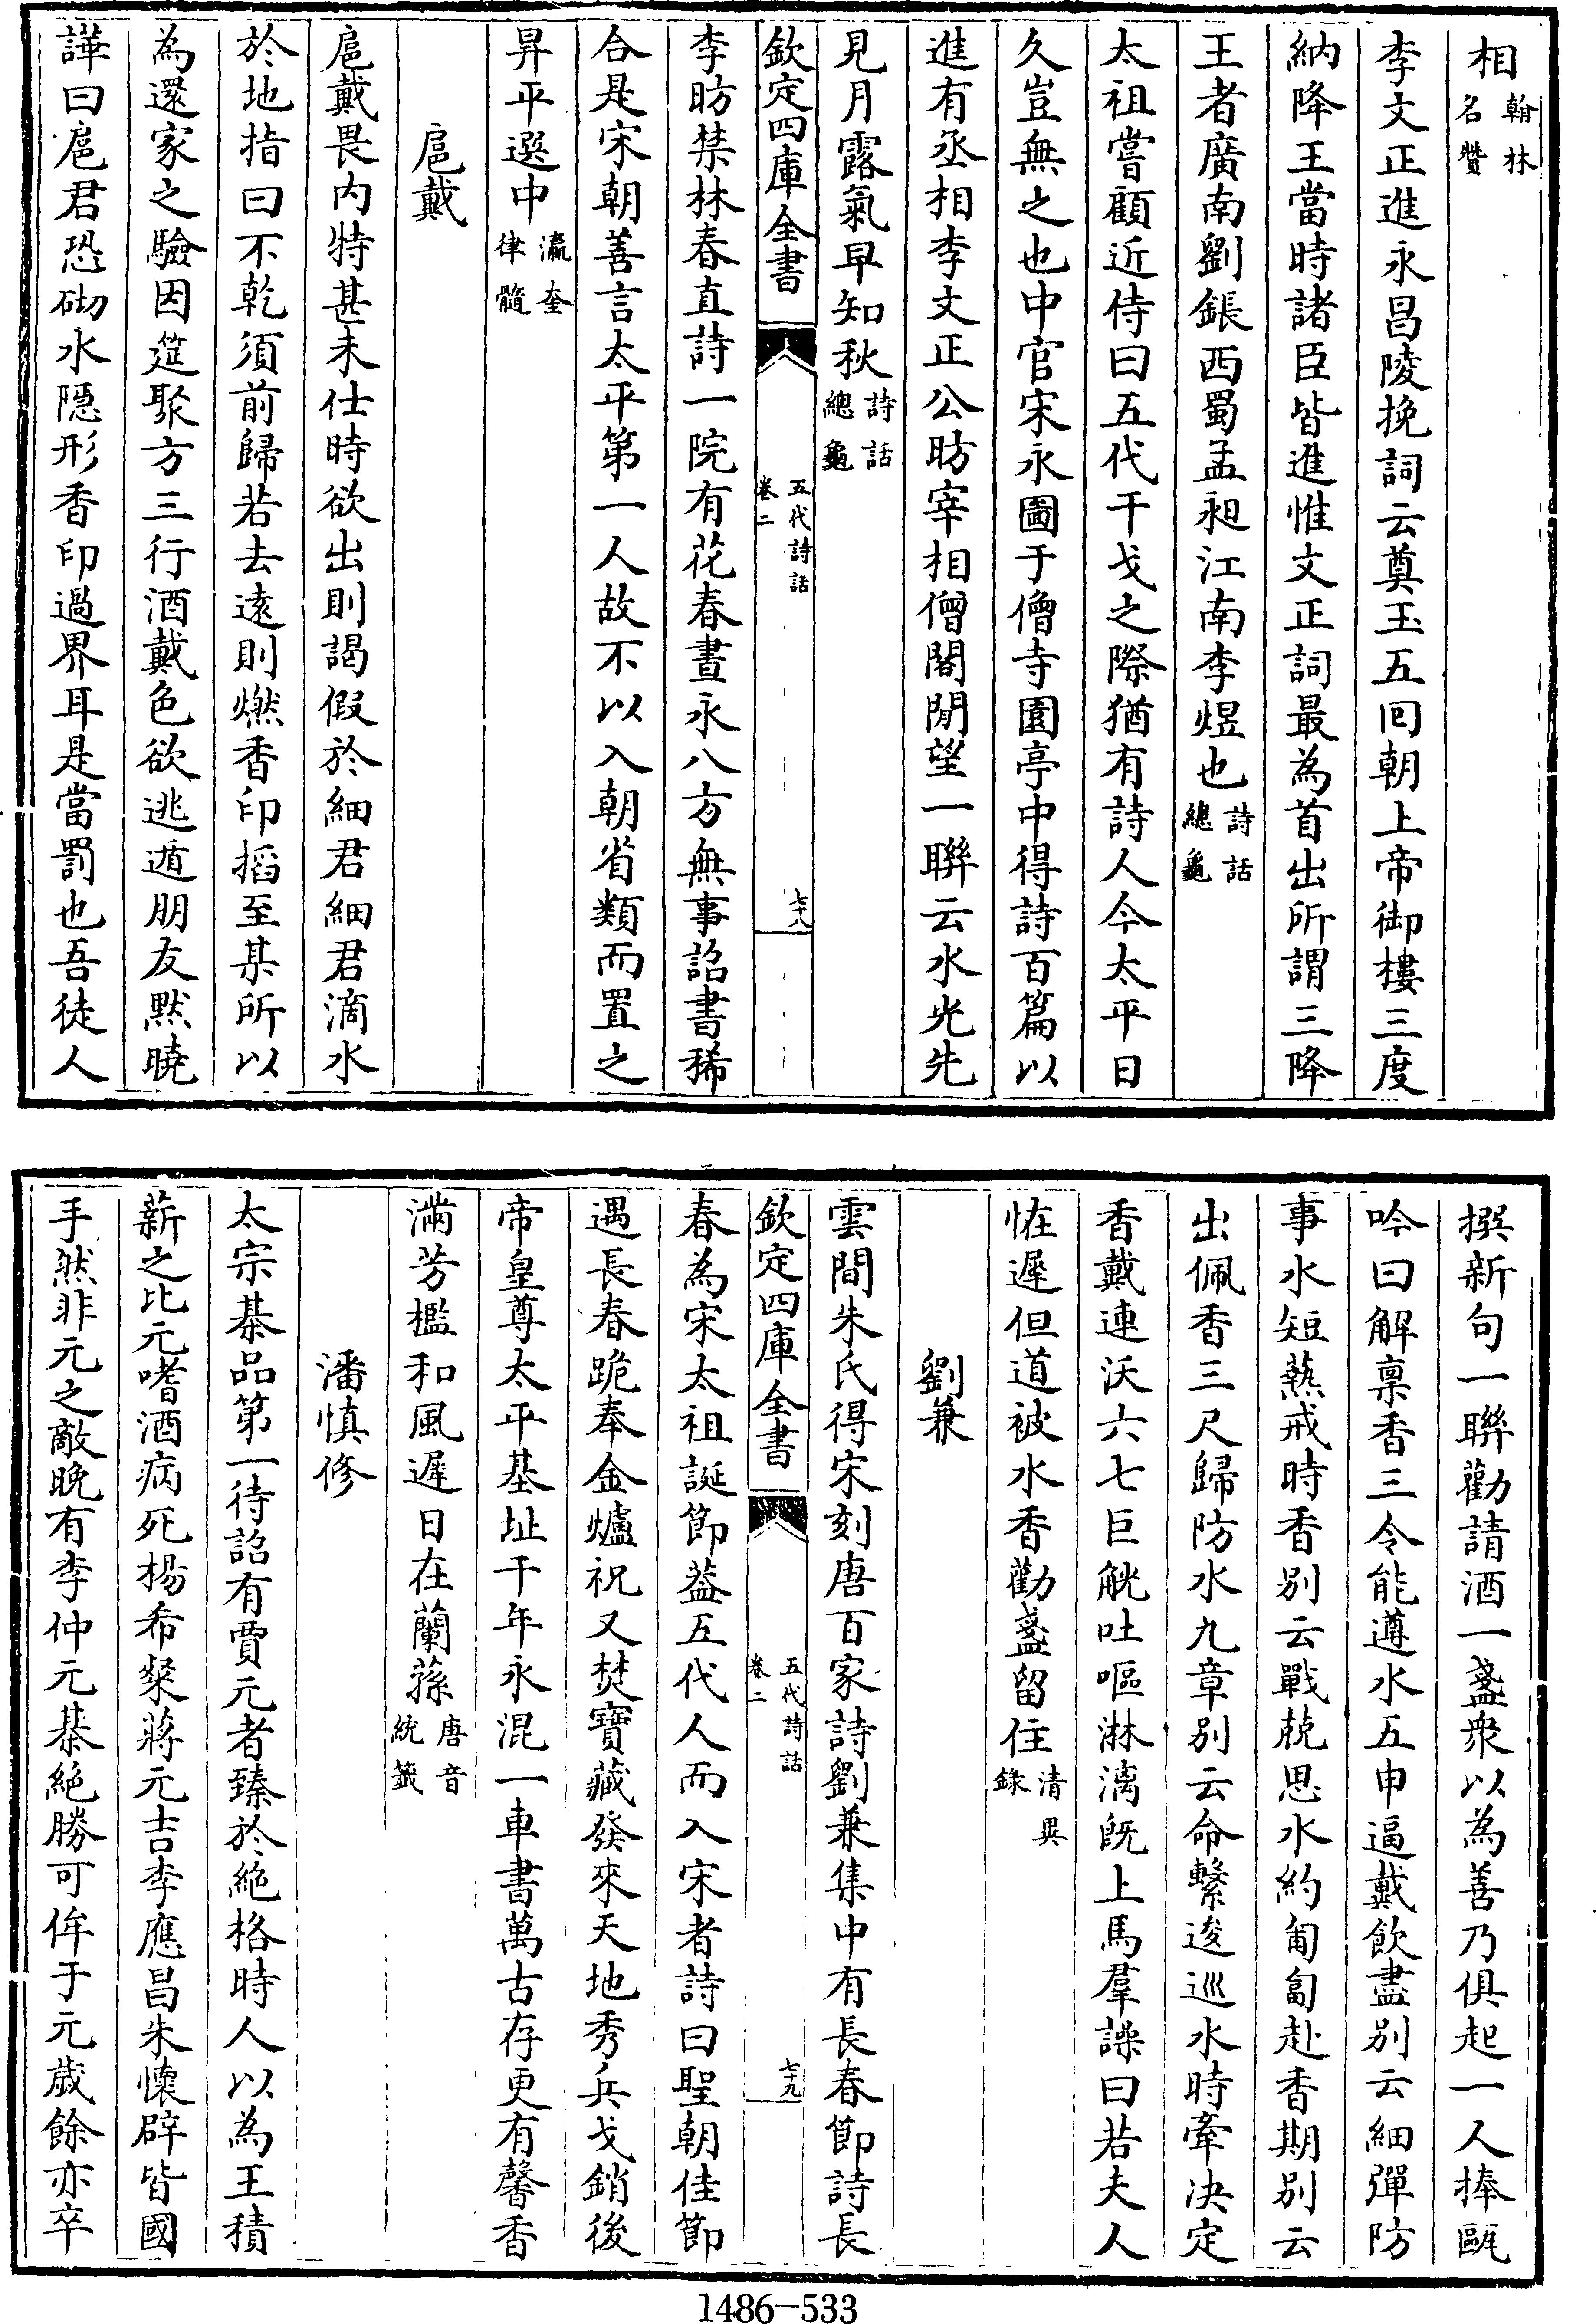 相翰林名贊
李文正進永昌陵挽詞云奠玉五回朝上帝御樓三度
納降王當時諸臣皆進惟文正詞最為首出所謂三降
王者廣南劉鋹西蜀孟昶江南李煜也詩話總龜
太祖嘗顧近侍曰五代干戈之際猶有詩人今太平日
久豈無之也中官宋永圖于僧寺園亭中得詩百篇以
進有丞相李文正公昉宰相僧閣閒望一聯云水光先
見月露氣早知秋詩話總龜
欽定四庫全書 五代詩話卷二 七十八
李昉禁林春直詩一院有花春晝永八方無事詔書稀
合是宋朝善言太平第一人故不以入朝省類而置之
昇平選中瀛奎律髓
扈戴
扈戴畏内特甚未仕時欲出則謁假於細君細君滴水
於地指曰不乾須前歸若去遠則燃香印搯至某所以
為還家之驗因筵聚方三行酒戴色欲逃遁朋友默曉
譁曰扈君恐砌水隱形香印過界耳是當罰也吾徒人
撰新句一聯勸請酒一盞衆以為善乃俱起一人捧甌
吟曰解禀香三令能遵水五申逼戴飲盡别云細彈防
事水短爇戒時香别云戰兢思水約匍匐赴香期别云
出佩香三尺歸防水九章别云命繫逡巡水時牽决定
香戴連沃六七巨觥吐嘔淋漓既上馬羣譟曰若夫人
恠遲但道被水香勸盞留住清異錄
劉兼
雲間朱氏得宋刻唐百家詩劉兼集中有長春節詩長
欽定四庫全書 五代詩話卷二 七十九
春為宋太祖誕節葢五代人而入宋者詩曰聖朝佳節
遇長春跪奉金爐祝又焚寶藏發來天地秀兵戈銷後
帝皇尊太平基址千年永混一車書萬古存更有馨香
滿芳檻和風遲日在蘭蓀唐音統籤
潘慎修
太宗棊品第一待詔有賈元者臻於絶格時人以為王積
薪之比元嗜酒病死楊希粲蔣元吉李應昌朱懷辟皆國
手然非元之敵晚有李仲元棊絶勝可侔于元歲餘亦卒
1486-533